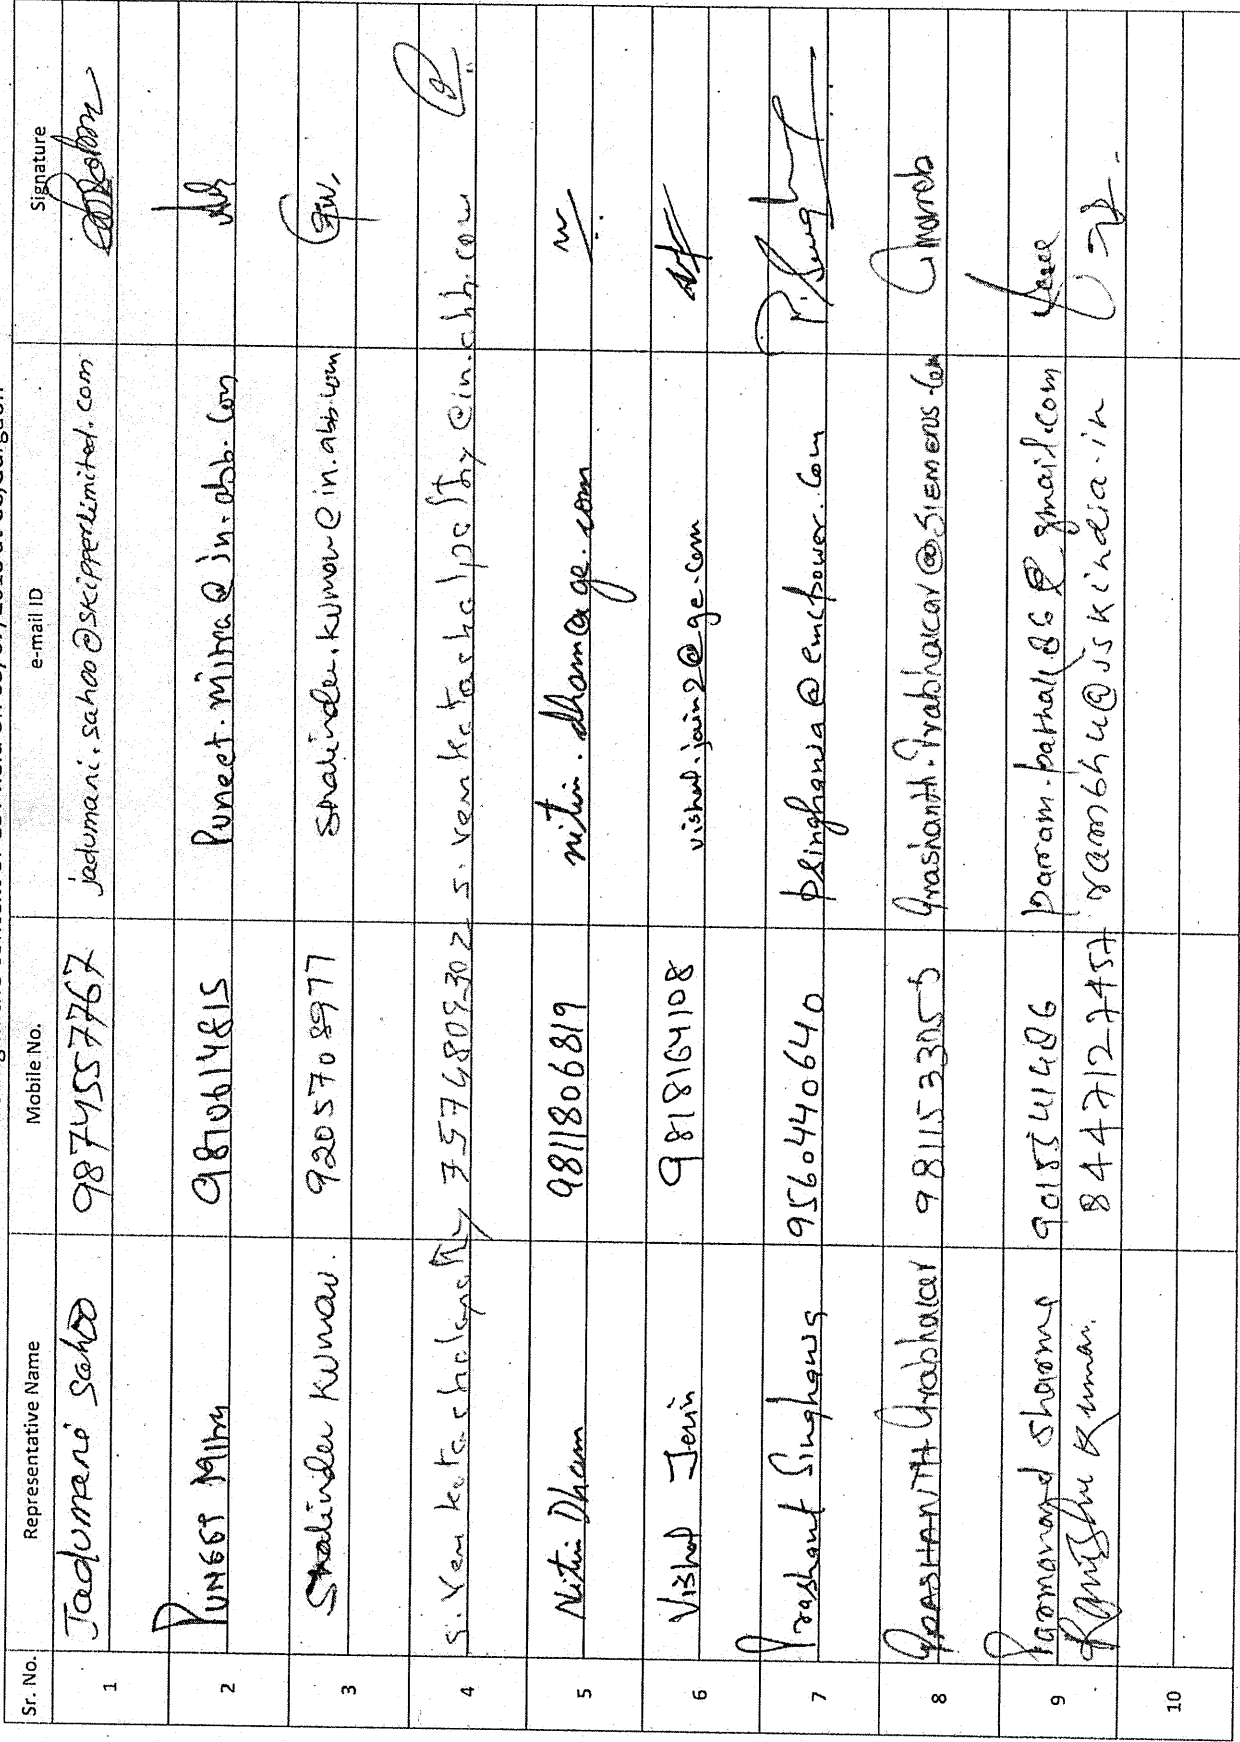 Sr. No. Representative Name Mobile No. e-mail ID Signature
1 Jadumani Sahoo 9874557767 jadumani.sahoo@skipperlimited.com
2 PUNEET 9810614815 Puneet.misra@in.abb.com
3 Shalinder Kumar. 9205708977 Shalinder.kumar@in.abb.com
4 S. Venkatachalapathy 7574809302 s.venkatachalapathy@in.abb.com
5 Nitin Dham 9811806819 nitin.dham@ge.com
6 Vishal Jain 9818164108 vishal.jain2@ge.com
7 Prashant Singhania 9560440640 psinghania@emcpower.com P. Singh
8 PRASHANTH Prabhakar 9811533055 Prashanth.Prabhakar@SIEMENS.com
9 Parmanand Sharma 9015541486 param.barthal86@gmail.com
Kumar. 8447127457 rambhu@jskindia.in
10